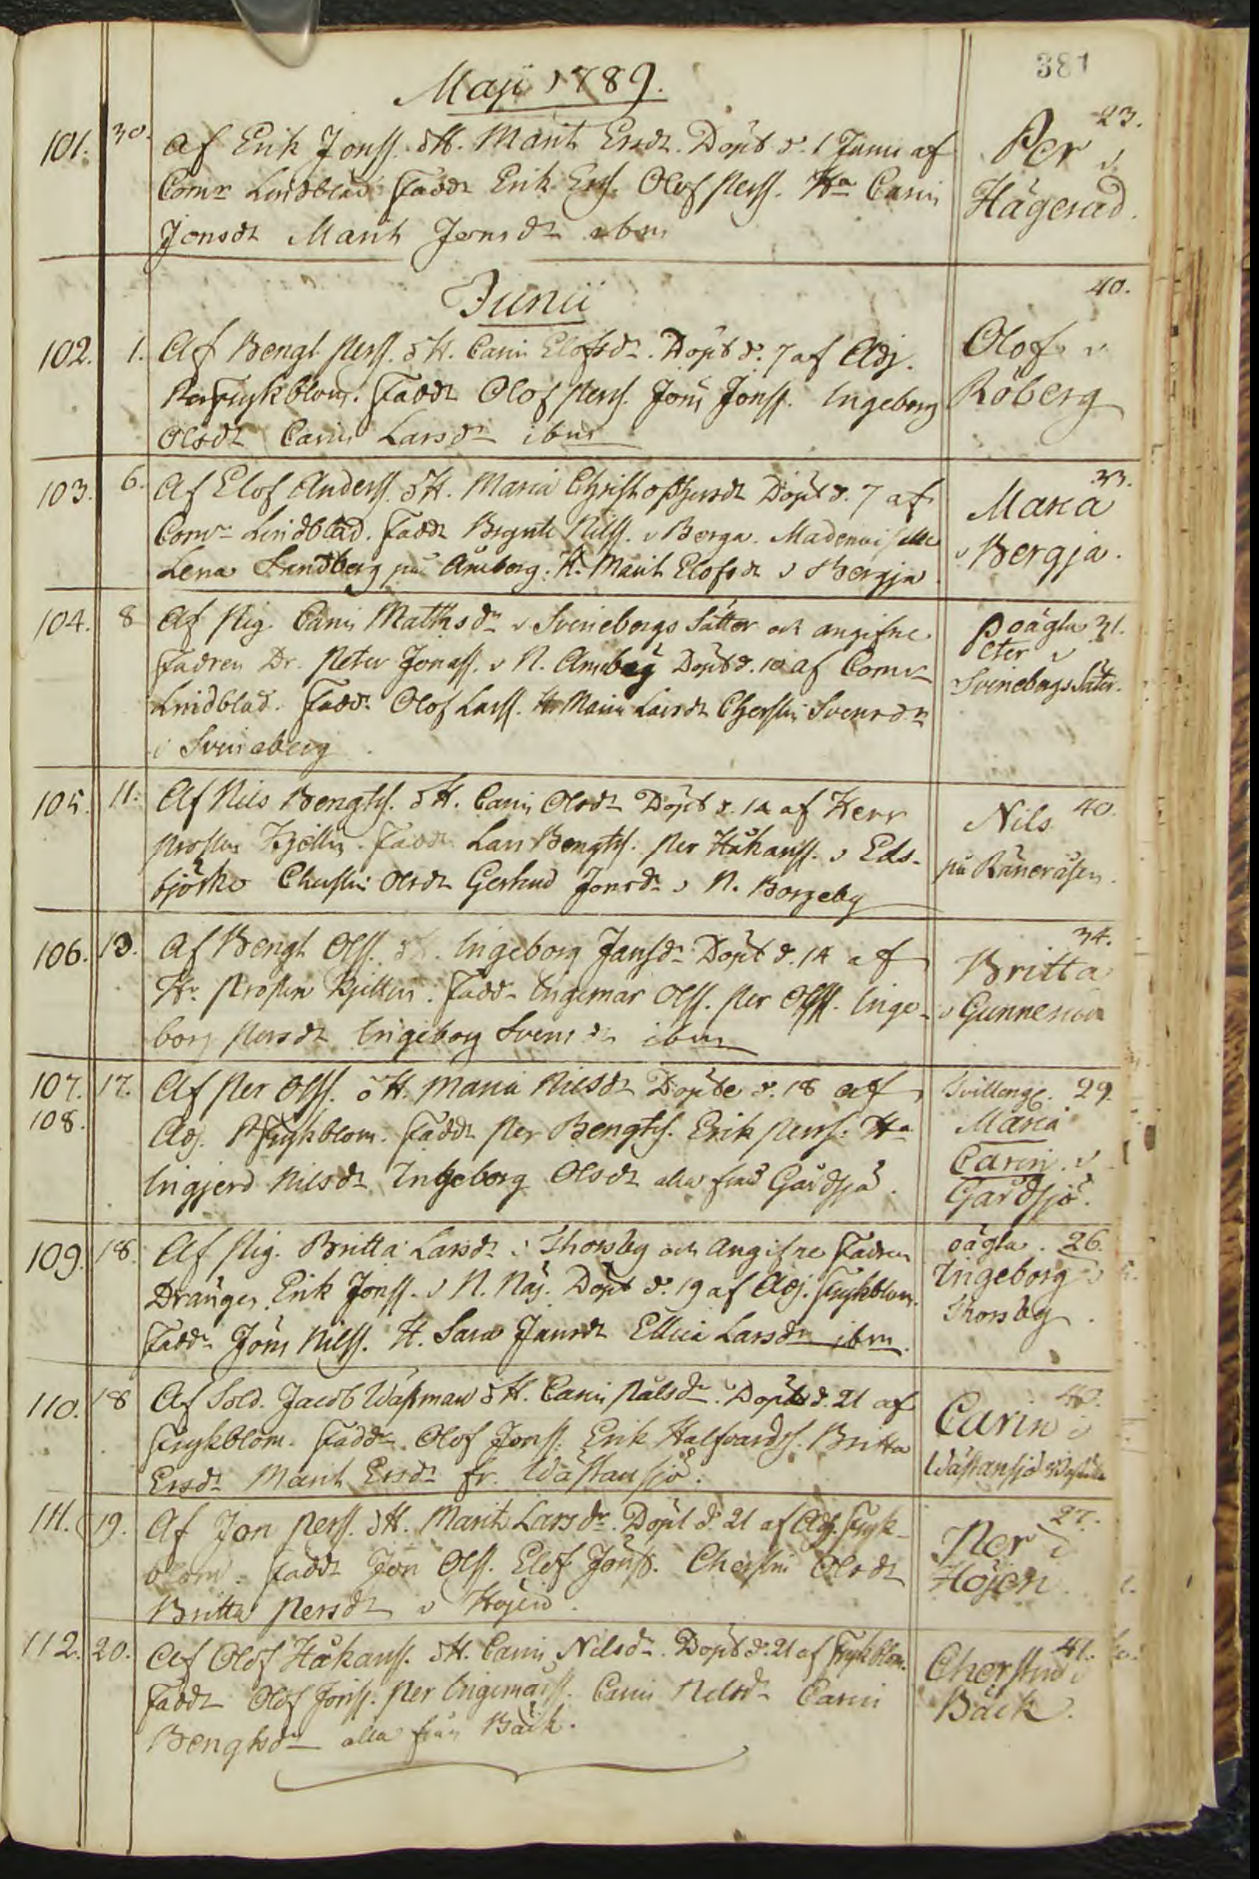 381
Maji 1789.
101. 30. Af Erik Jonss. o H. Marit Ersdr. Döpt d. 1 Junii af
Comr Lindblad. Faddr Erik Erss. Olof Perss. Ha Carin
Jonsdr Marit Jonsdr ibm
23.
Per i
Hägerud.
Junii
102. 1. Af Bengt Perss. o H. Carin Elofsdr. Döpt d. 7 af Adj.
Frykblom. Faddr Olof Perss. Jöns Jonss. Ingeborg
Olsdr Carin Larsdr ibm
40.
Olof i
Röberg
103. 6. Af Elof Anderss. o H. Maria Christophersdr Döpt d. 7 af
Comr Lindblad. Faddr Brynte Nilss. i Berga. Mademoiselle
Lena Sandberg på Amberg. H. Marit Elofsdr i Bergja
33.
Maria
i Bergja.
104. 8 Af Pig. Carin Mathsdr i Svinebergs Sätter och angifne
Fadren Dr. Peter Jonass. i N. Amberg Döpt d. 10 af Comr
Lindblad. Fadd. Olof Larss. H. Maria Larsdr Cherstin Svensdr
i Svineberg
oägta 31.
Peter i
Svinebergs Säter.
105. 11. Af Nils Bengtss. o H. Carin Olsdr Döpt d. 14 af Herr
Prosten Kjellin. Faddr Lars Bengtss. Per Håkanss. i Eds-
björke Cherstin Olsdr Gertrud Jonsdr i N. Borgeby
40.
Nils
på Råneråsen.
106. 13. Af Bengt Olss. o H. Ingeborg Jansdr Döpt d. 14 af
Hr Prosten Kjellin. Faddr Ingemar Olss. Per Olss. Inge-
borg Persdr Ingeborg Svensdr ibm
34.
Britta
i Gunnerud
107. 17. Af Per Olss. o H. Maria Nilsdr Döpte d. 18 af
108. Adj. Frykblom. Faddr Per Bengtss. Erik Perss. Ha
Ingjerd Nilsdr Ingeborg Olsdr alla från Gårdsjö.
Tvilling. 29.
Maria
Carin i
Gårdsjö.
109. 18. Af Pig. Britta Larsdr i Thorsby och angifne Fadren
Drängen Erik Jonss. i N. Näs. Döpt d. 19 af Adj. Frykblom.
Faddr Jöns Nilss. H. Sara Jansdr Ellica Larsdr ibm.
oägta. 26.
Ingeborg i
Thorsby.
110. 18 Af Sold. Jacob Wässman o H. Carin Pålsdr. Döpt d. 21 af
Frykblom. Faddr Olof Jonss. Erik Halfvardss. Britta
Ersdr Marit Ersdr fr. Wästansjö.
Carin i
Wästansjö
111. 19. Af Jon Perss. o H. Marit Larsdr. Döpt d. 21 af Adj. Fryk-
blom. Faddr Jon Olss. Elof Jönss. Cherstin Olsdr
Britta Persdr i Höjen.
27.
Per i
Höjen.
112. 20. Af Olof Håkanss. o H. Carin Nilsdr. Döpt d. 21 af Frykblom.
Faddr Olof Jonss. Per Ingemarss. Carin Nilsdr Carin
Bengtsdr alla från Bäck.
41.
Cherstin i
Bäck.